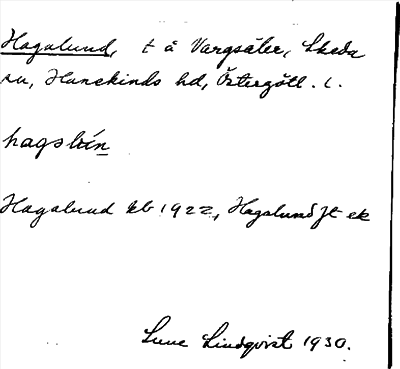 Hagalund, t å Vargsäter, Skeda
sn, Hanekinds hd, Östergötl. l.
Hagalund kb 1922, Hagalund jt ek
Sune Lindqvist 1930.